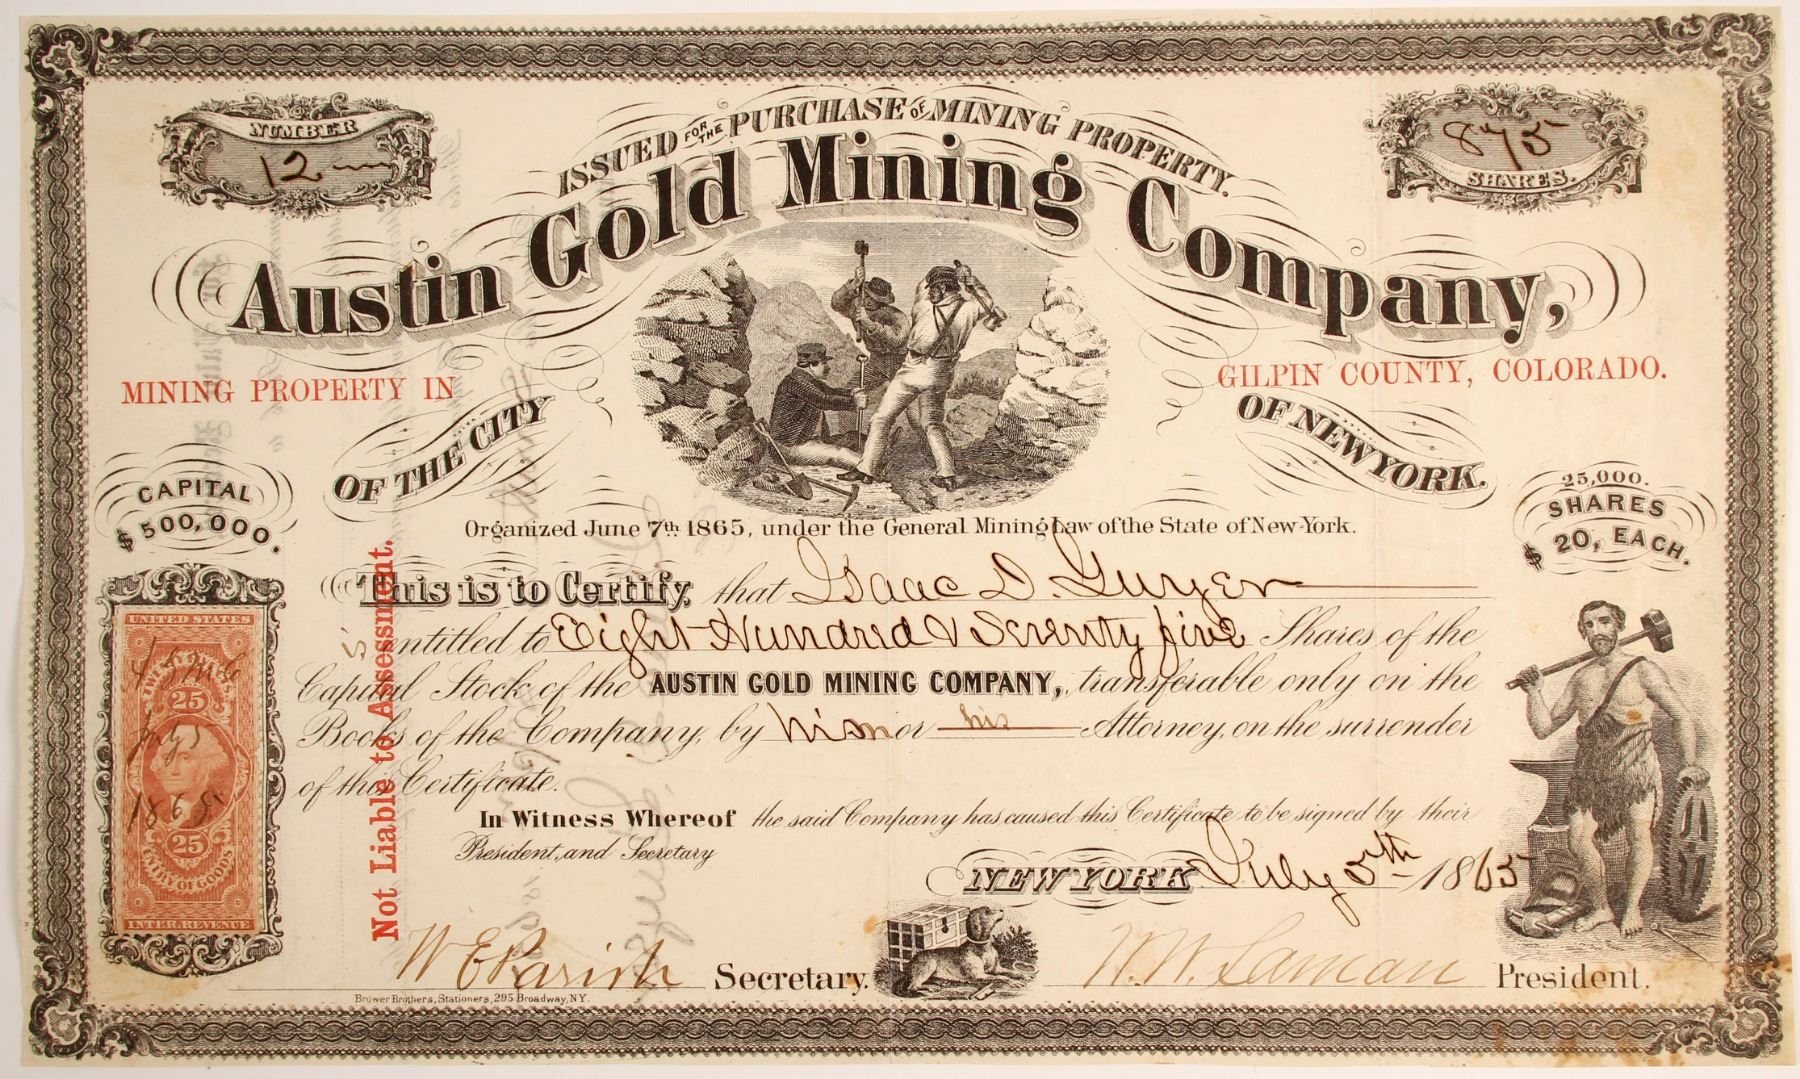 NUMBER
12
ISSUED FOR THE PURCHASE OF MINING PROPERTY.
875
SHARES.
Austin Gold Mining Company,
MINING PROPERTY IN
GILPIN COUNTY, COLORADO.
OF THE CITY
OF NEW YORK.
CAPITAL
$500,000.
25,000.
SHARES
$20, EACH.
Organized June 7th 1865, under the General Mining Law of the State of New-York.
This is to Certify, that Isaac D. Guyer
is entitled to Eight Hundred & Seventy five Shares of the
Capital Stock of the AUSTIN GOLD MINING COMPANY, transferable only on the
Books of the Company, by him or his Attorney, on the surrender
of this Certificate.
In Witness Whereof the said Company has caused this Certificate to be signed by their
President, and Secretary
NEW YORK July 5th 1865
Not Liable to Assessment.
UNITED STATES
25
July 5
1865
25
ENTRY OF GOODS
INTER. REVENUE
W E Parish Secretary.
W. W. Laman President.
Brower Brothers, Stationers, 295 Broadway, N.Y.